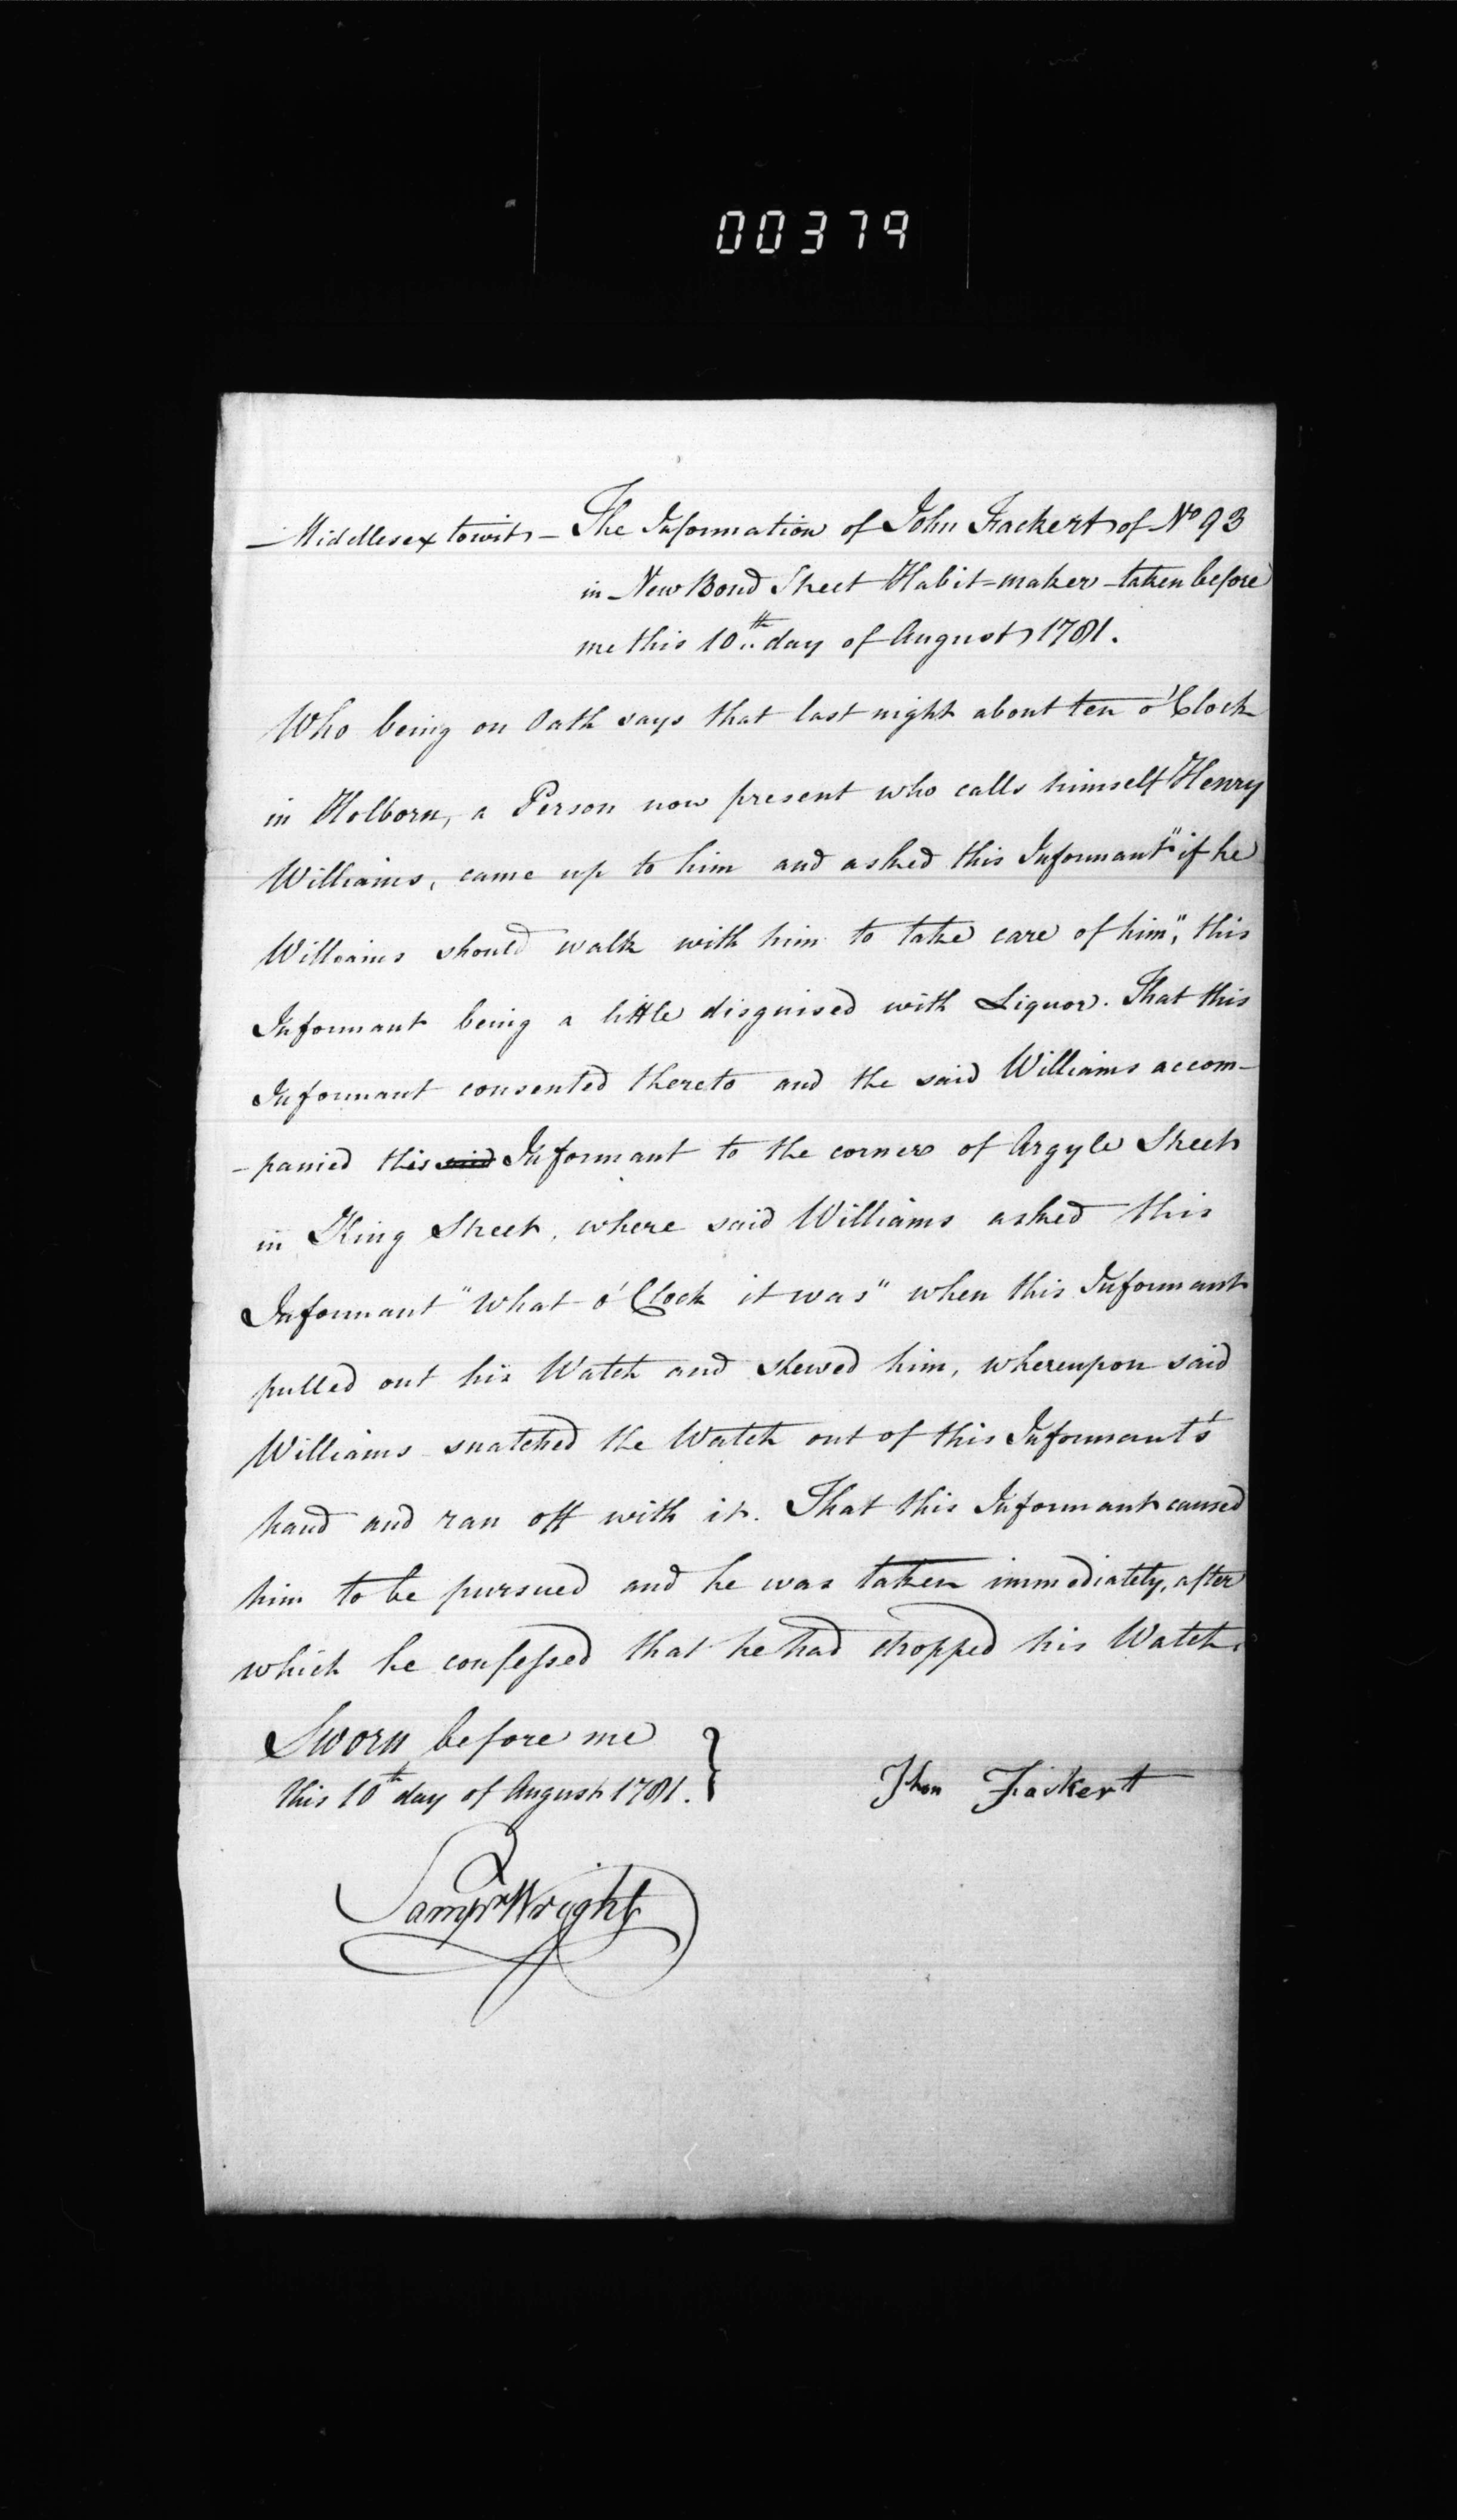 00379
Middlesex towit - The Information of John Fackert of No 93
in New Bond Street Habit=maker - taken before
me this 10th day of August 1781.
Who being on Oath says that last night about ten o'Clock
in Holborn, a Person now present who calls himself Henry
Williams, came up to him and asked this Informant "if he
Williams should walk with him to take care of him", this
Informant being a little disguised with Liquor. That this
Informant consented thereto and the said Williams accom-
-panied this said Informant to the corner of Argyle Street
in King Street, where said Williams asked this
Informant "What o'Clock it was" when this Informant
pulled out his Watch and shewed him, whereupon said
Williams snatched the Watch out of this Informant's
hand and ran off with it. That this Informant caused
him to be pursued and he was taken immediately, after
which he confessed that he had dropped his Watch.
Sworn before me
this 10th day of August 1781. }
Jhon Fackert
Sampn Wright